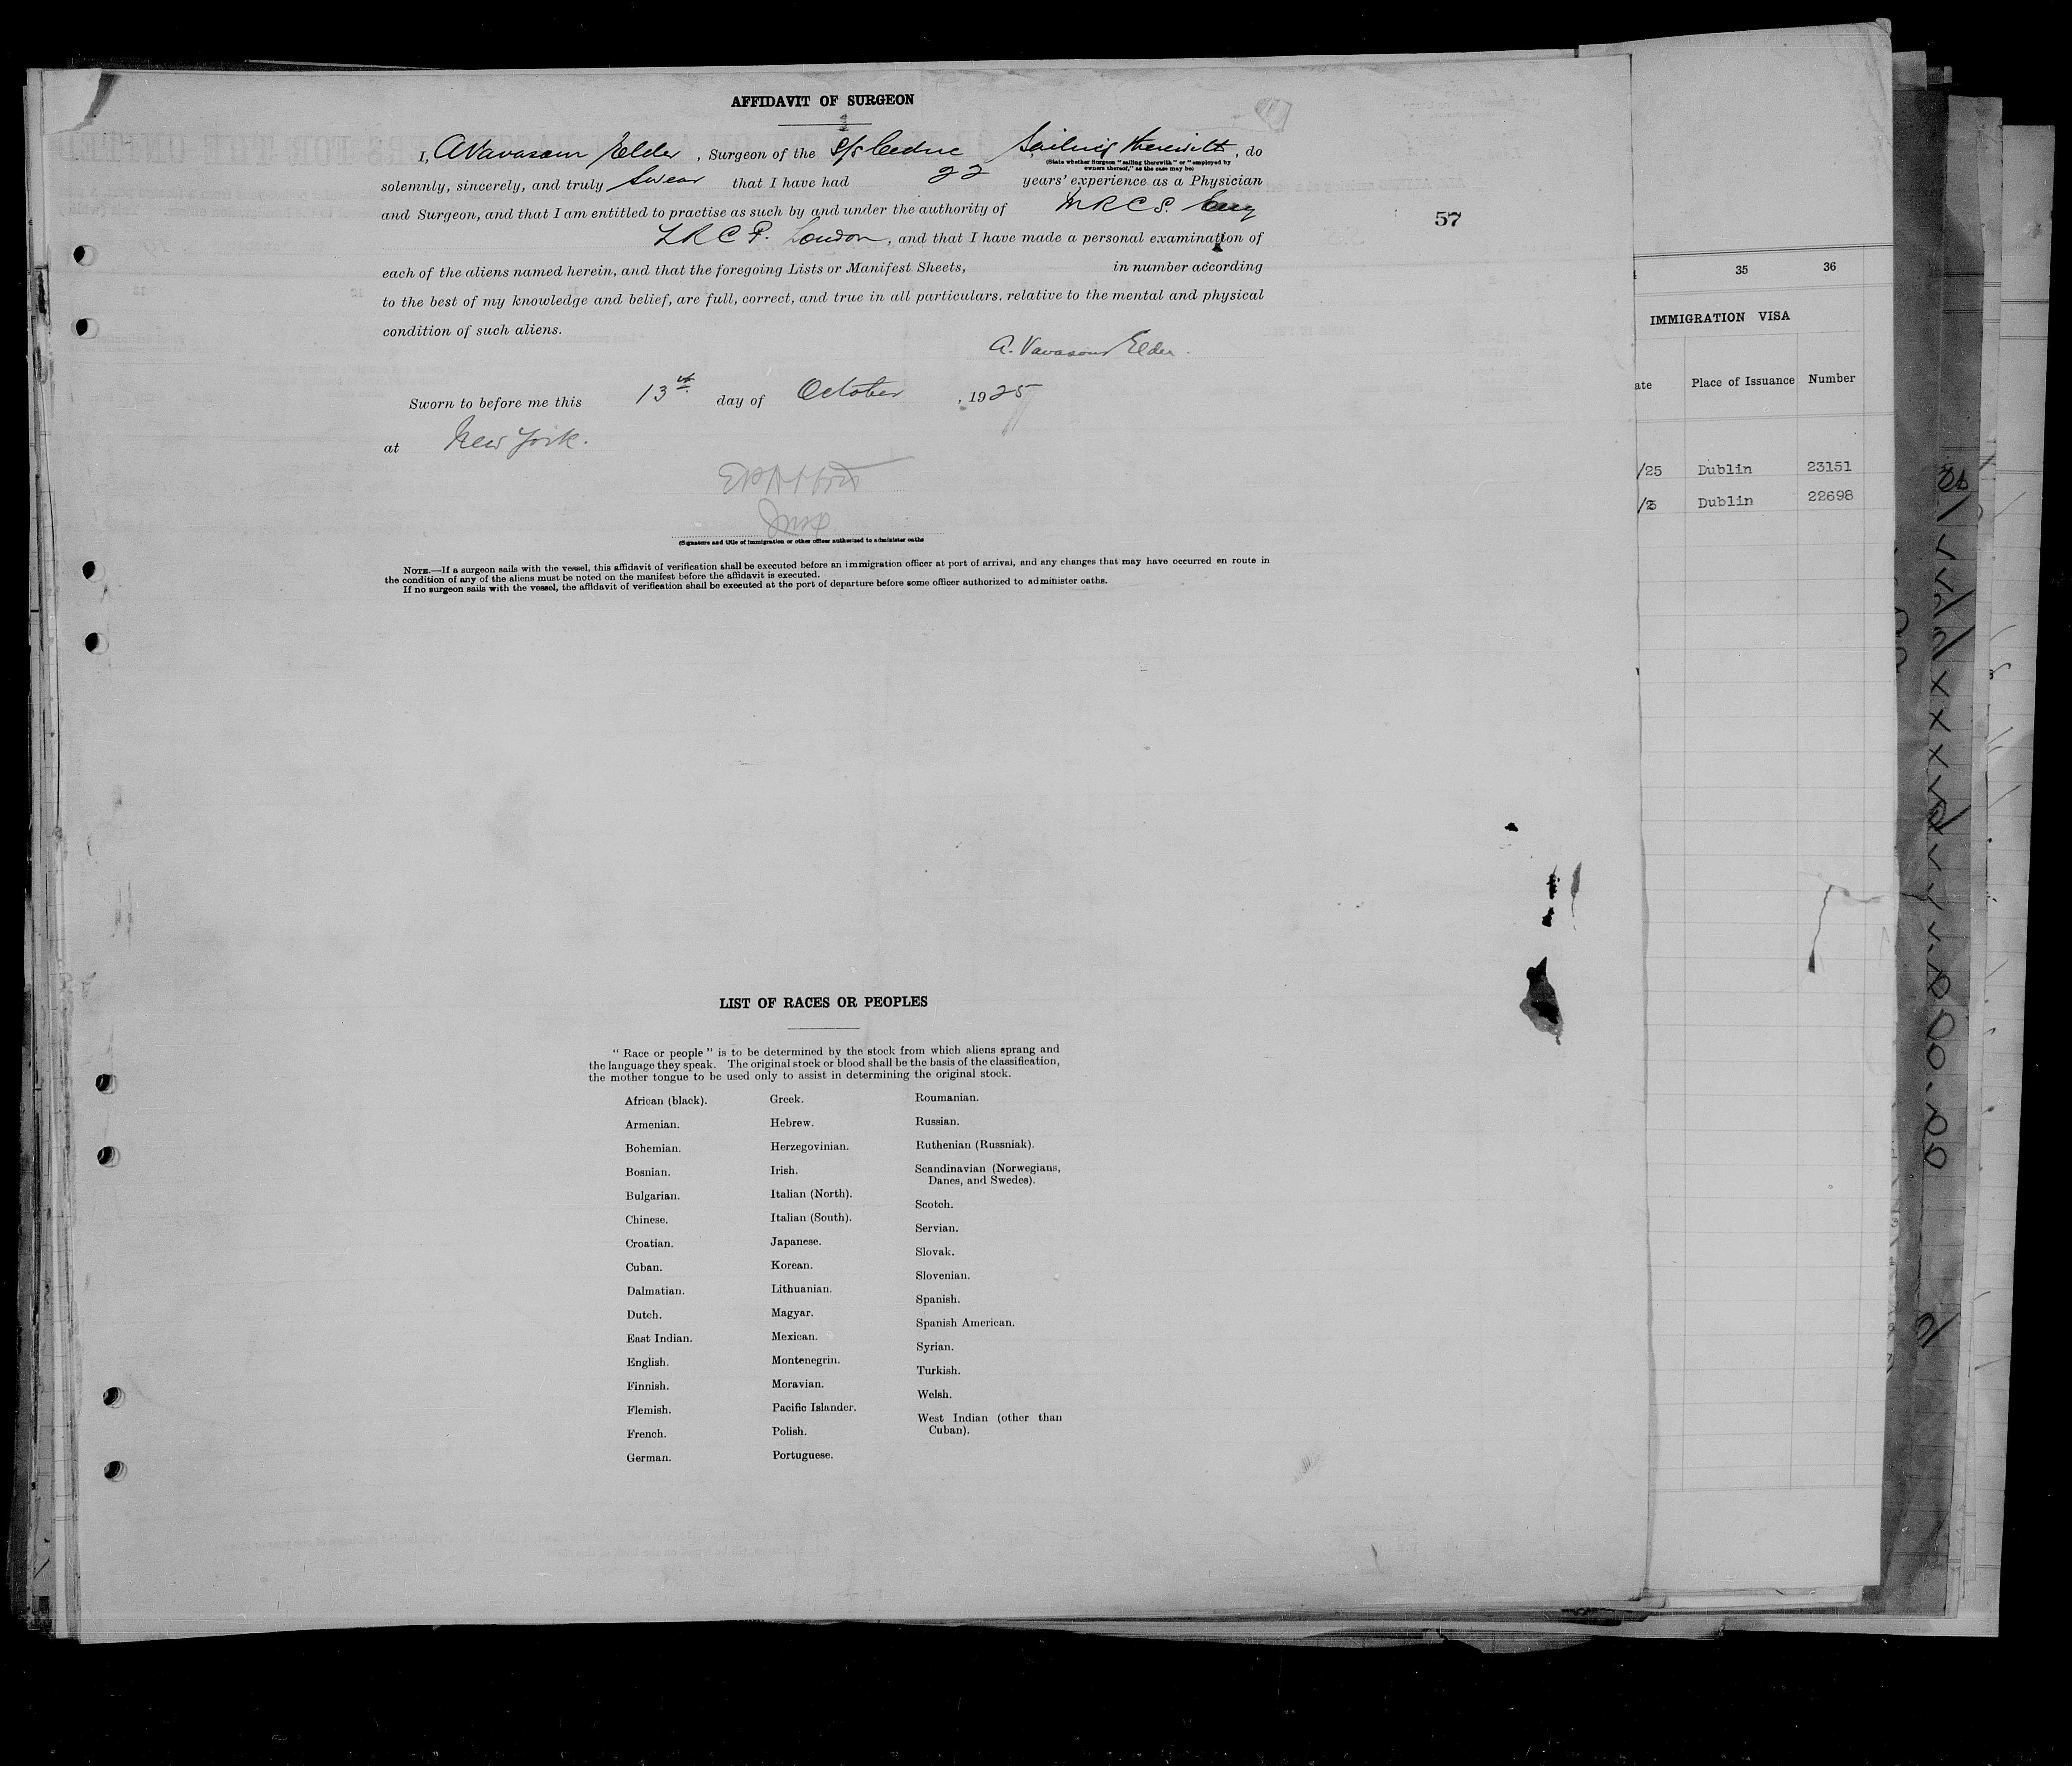 AFFIDAVIT OF SURGEON
I, A Vavasour Elder, Surgeon of the S/S Cedric Sailing therewith, do
(State whether Surgeon "sailing therewith" or "employed by
owners thereof," as the case may be)
solemnly, sincerely, and truly swear that I have had 22 years' experience as a Physician
and Surgeon, and that I am entitled to practise as such by and under the authority of MRCS. Eng
57
LRCP. London, and that I have made a personal examination of
each of the aliens named herein, and that the foregoing Lists or Manifest Sheets, in number according
to the best of my knowledge and belief, are full, correct, and true in all particulars. relative to the mental and physical
condition of such aliens.
A. Vavasour Elder.
Sworn to before me this 13th day of October, 1925
at New York.
(Signature and title of immigration or other officer authorized to administer oaths
NOTE.—If a surgeon sails with the vessel, this affidavit of verification shall be executed before an immigration officer at port of arrival, and any changes that may have occurred en route in
the condition of any of the aliens must be noted on the manifest before the affidavit is executed.
If no surgeon sails with the vessel, the affidavit of verification shall be executed at the port of departure before some officer authorized to administer oaths.
LIST OF RACES OR PEOPLES
"Race or people" is to be determined by the stock from which aliens sprang and
the language they speak. The original stock or blood shall be the basis of the classification,
the mother tongue to be used only to assist in determining the original stock.
African (black).
Armenian.
Bohemian.
Bosnian.
Bulgarian.
Chinese.
Croatian.
Cuban.
Dalmatian.
Dutch.
East Indian.
English.
Finnish.
Flemish.
French.
German.
Greek.
Hebrew.
Herzegovinian.
Irish.
Italian (North).
Italian (South).
Japanese.
Korean.
Lithuanian.
Magyar.
Mexican.
Montenegrin.
Moravian.
Pacific Islander.
Polish.
Portuguese.
Roumanian.
Russian.
Ruthenian (Russniak).
Scandinavian (Norwegians,
Danes, and Swedes).
Scotch.
Servian.
Slovak.
Slovenian.
Spanish.
Spanish American.
Syrian.
Turkish.
Welsh.
West Indian (other than
Cuban).
35 36
IMMIGRATION VISA
ate Place of Issuance Number
/25 Dublin 23151
Dublin 22698